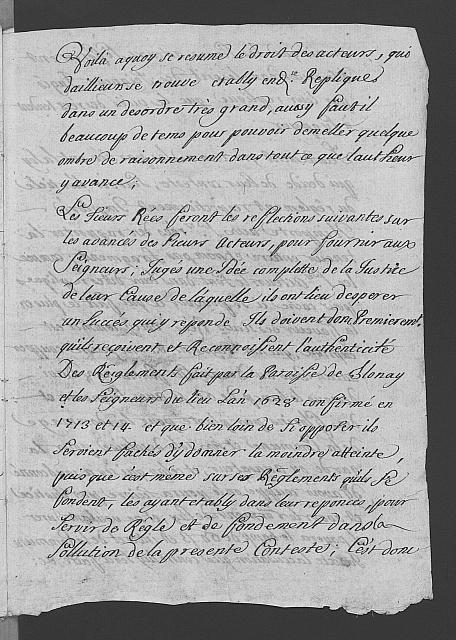 Voila aquoy se resume le droit des acteurs, qui
dailleurs se trouve etably en d.te Replique
dans un desordre très grand, aussy faut il
beaucoup de tems pour pouvoir demeller quelque
ombre de raisonnement dans tout ce que l'autheur
y avance;
Les Sieurs Rées feront les reflections suivantes sur
les avancés des Sieurs Acteurs, pour fournir aux
Seigneurs; Juges une Idée complette de la Justice
de leur Cause de laquelle ils ont lieu desperer
un succés qui y reponde Ils doivent dom Premieremt.
qu'ils reçoivent et Reconnoissent l'authenticité
Des Réglements fait par la Paroisse de Blonay
et les Seigneurs du lieu L'an 1628 confirmé en
1713 et 14. et que bien loin de S'y opposer ils
Seroient fachés d'y donner la moindre atteinte,
puis que c'est même sur ses Réglements qu'ils se
fondent, les ayant etably dans leur reponces, pour
Servir de Regle et de fondement dans la
Sollution de la presente Conteste; C'est donc